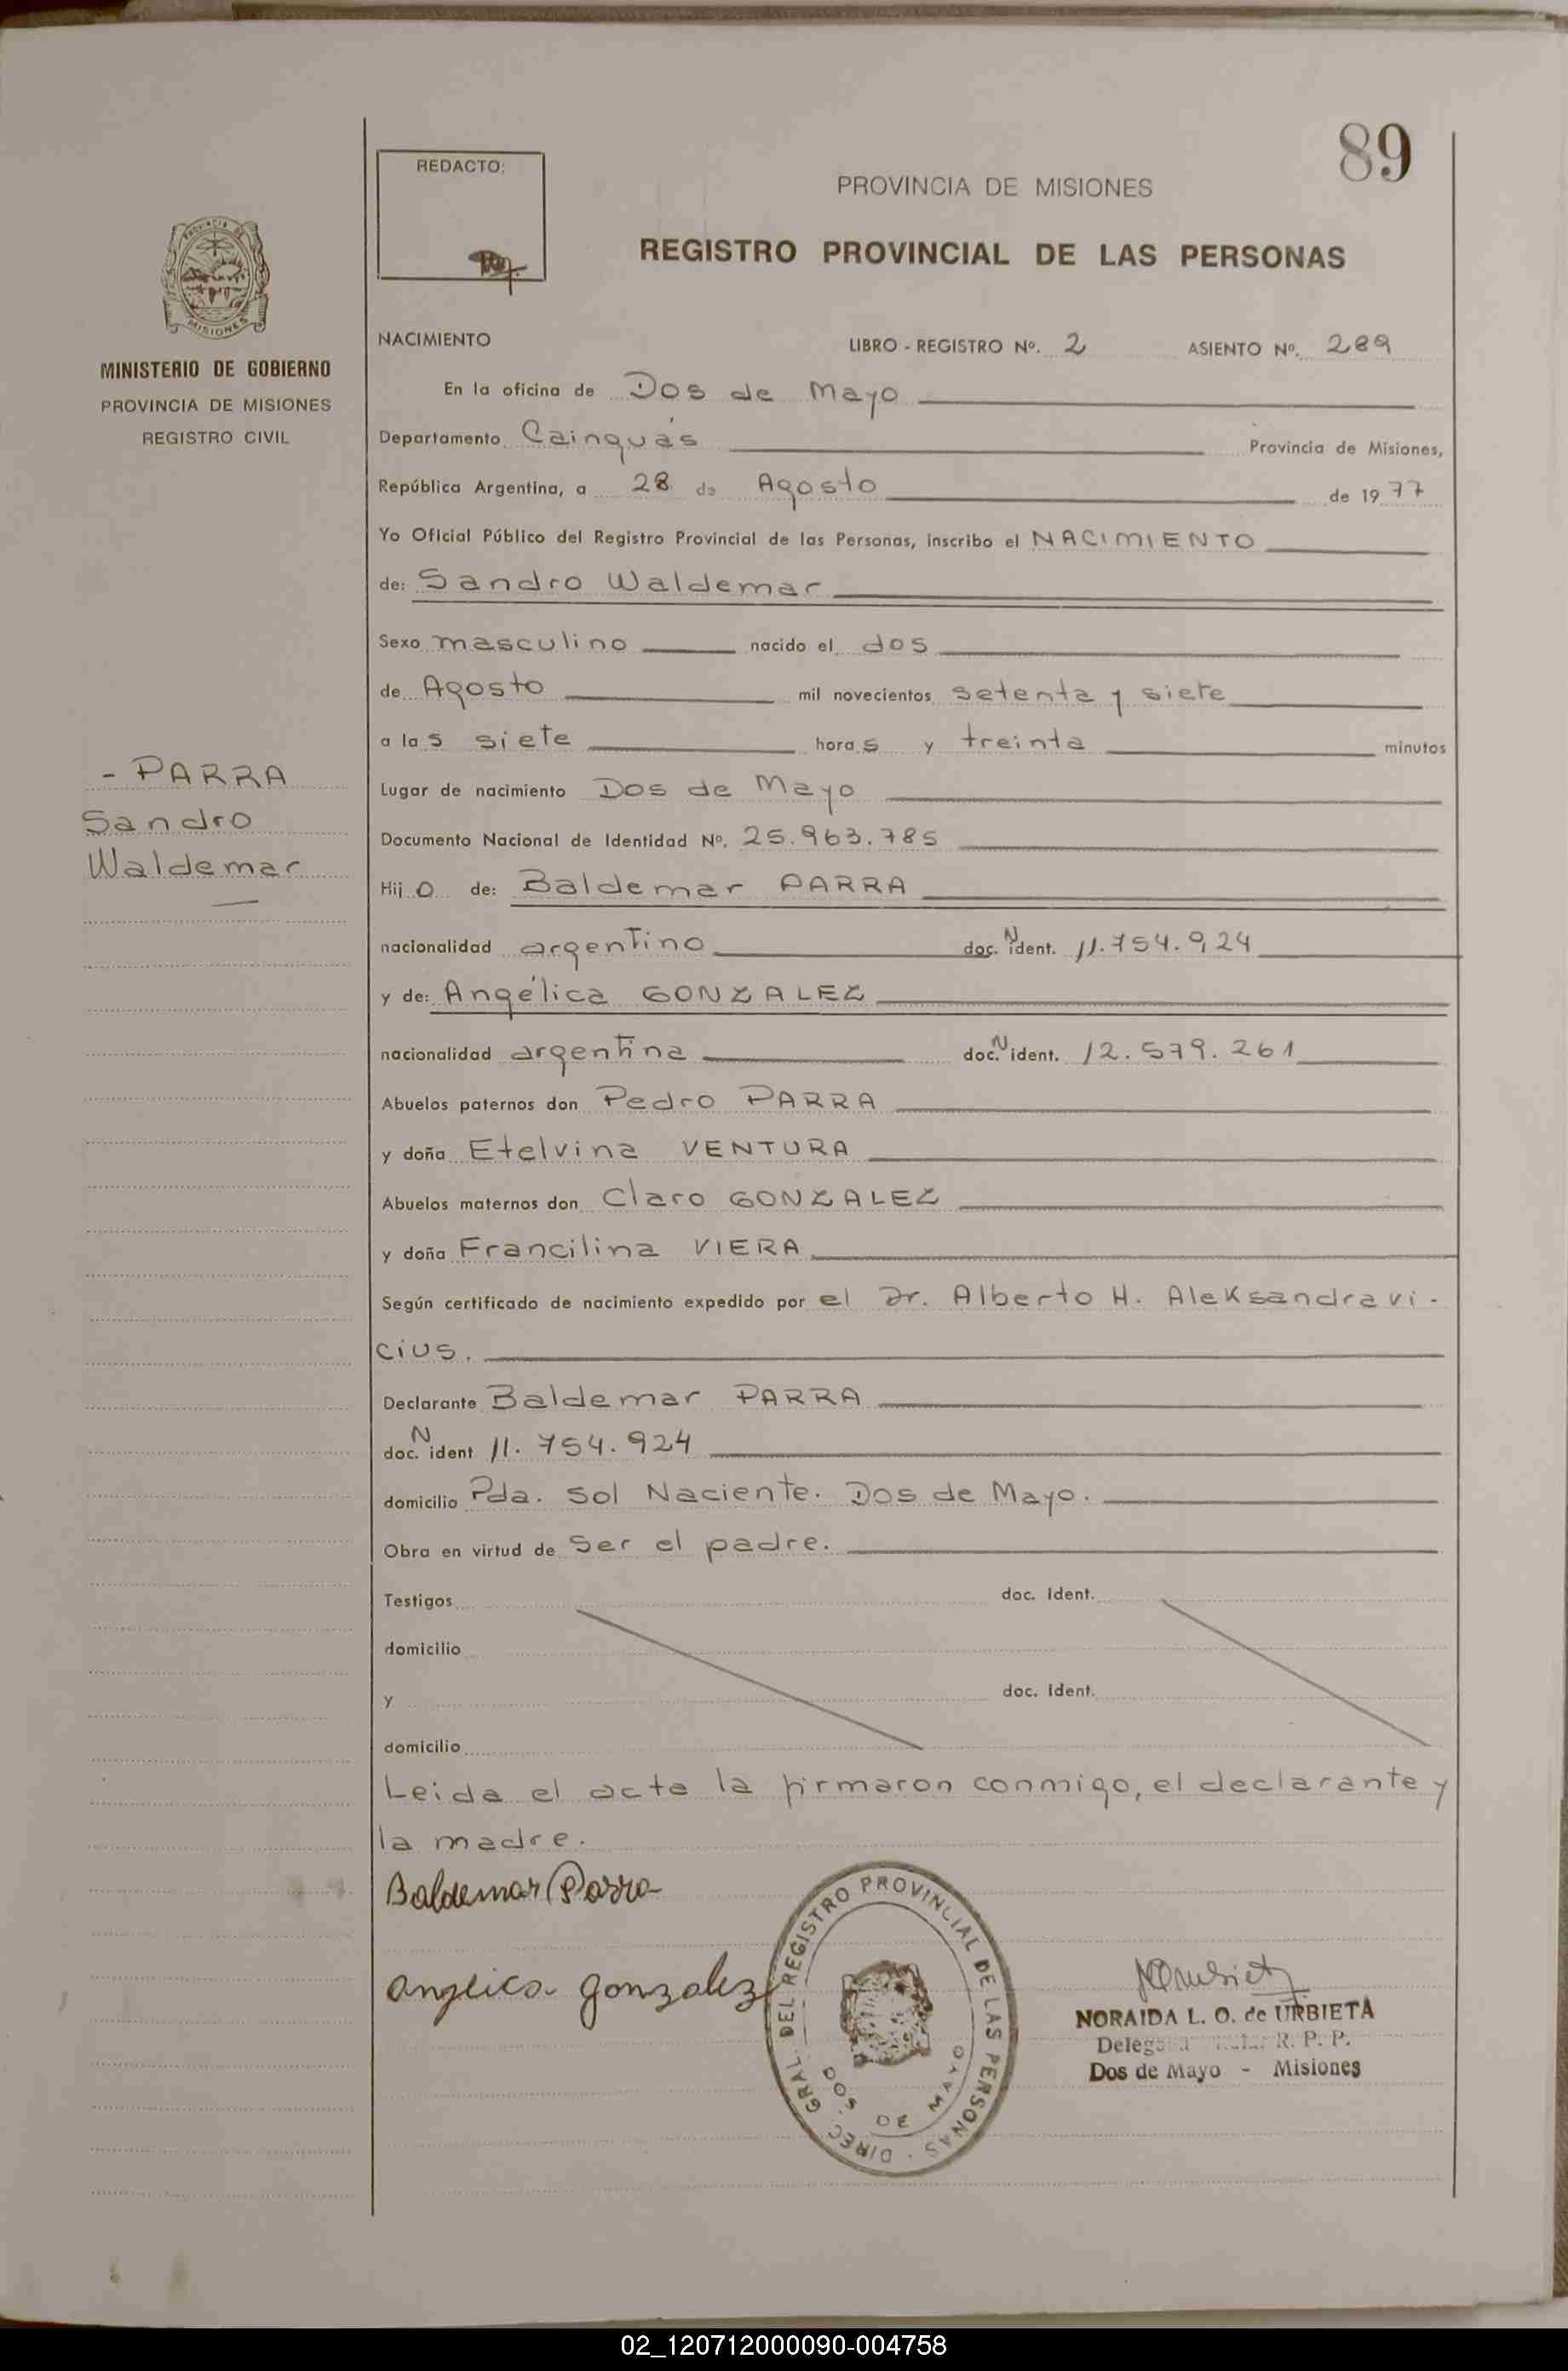 89
REDACTO:
PROVINCIA DE MISIONES
REGISTRO PROVINCIAL DE LAS PERSONAS
PROVINCIA DE
MISIONES
MINISTERIO DE GOBIERNO
PROVINCIA DE MISIONES
REGISTRO CIVIL
NACIMIENTO LIBRO - REGISTRO Nº. 2 ASIENTO Nº. 289
En la oficina de Dos de Mayo
Departamento Cainguás Provincia de Misiones,
República Argentina, a 28 de Agosto de 1977
Yo Oficial Público del Registro Provincial de las Personas, inscribo el NACIMIENTO
de: Sandro Waldemar
Sexo masculino nacido el dos
de Agosto mil novecientos setenta y siete
a las siete horas y treinta minutos
- PARRA
Sandro
Waldemar
Lugar de nacimiento Dos de Mayo
Documento Nacional de Identidad Nº. 25.963.785
Hijo de: Baldemar PARRA
nacionalidad argentino doc. N ident. 11.754.924
y de: Angélica GONZALEZ
nacionalidad argentina doc. N ident. 12.579.261
Abuelos paternos don Pedro PARRA
y doña Etelvina VENTURA
Abuelos maternos don Claro GONZALEZ
y doña Francilina VIERA
Según certificado de nacimiento expedido por el Dr. Alberto H. Aleksandravi-
cius.
Declarante Baldemar PARRA
doc. N ident 11.754.924
domicilio Pda. Sol Naciente. Dos de Mayo.
Obra en virtud de Ser el padre.
Testigos doc. Ident.
domicilio
y doc. Ident.
domicilio
Leida el acta la firmaron conmigo, el declarante y
la madre.
Baldemar Parra
Angelica Gonzalez
DIREC. GRAL. DEL REGISTRO PROVINCIAL DE LAS PERSONAS
DOS DE MAYO
NORAIDA L. O. de URBIETA
R. P. P.
Dos de Mayo - Misiones
02_120712000090-004758